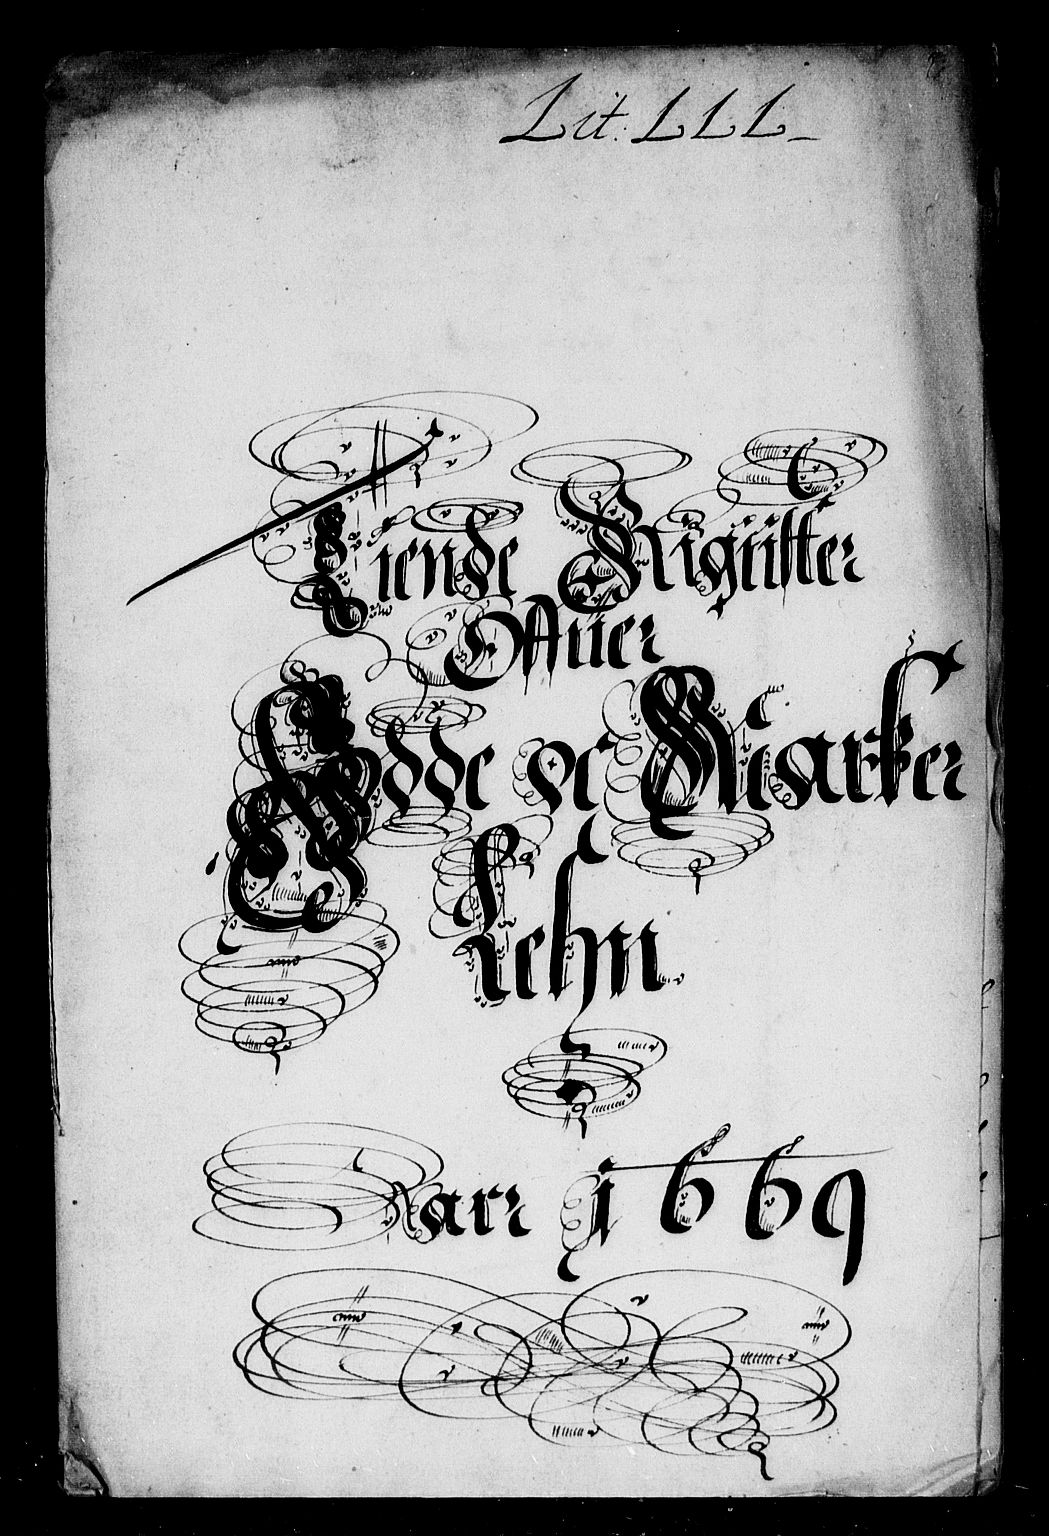 Lit. LLL
Tiende Rigister
Offuer
Hedde oc Marker
Lehn.
Aar 1669